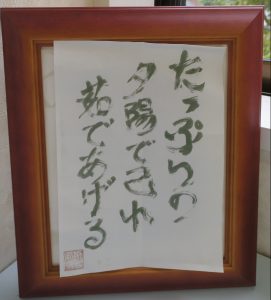 たっぷりの
夕陽で己れ
茹であげる